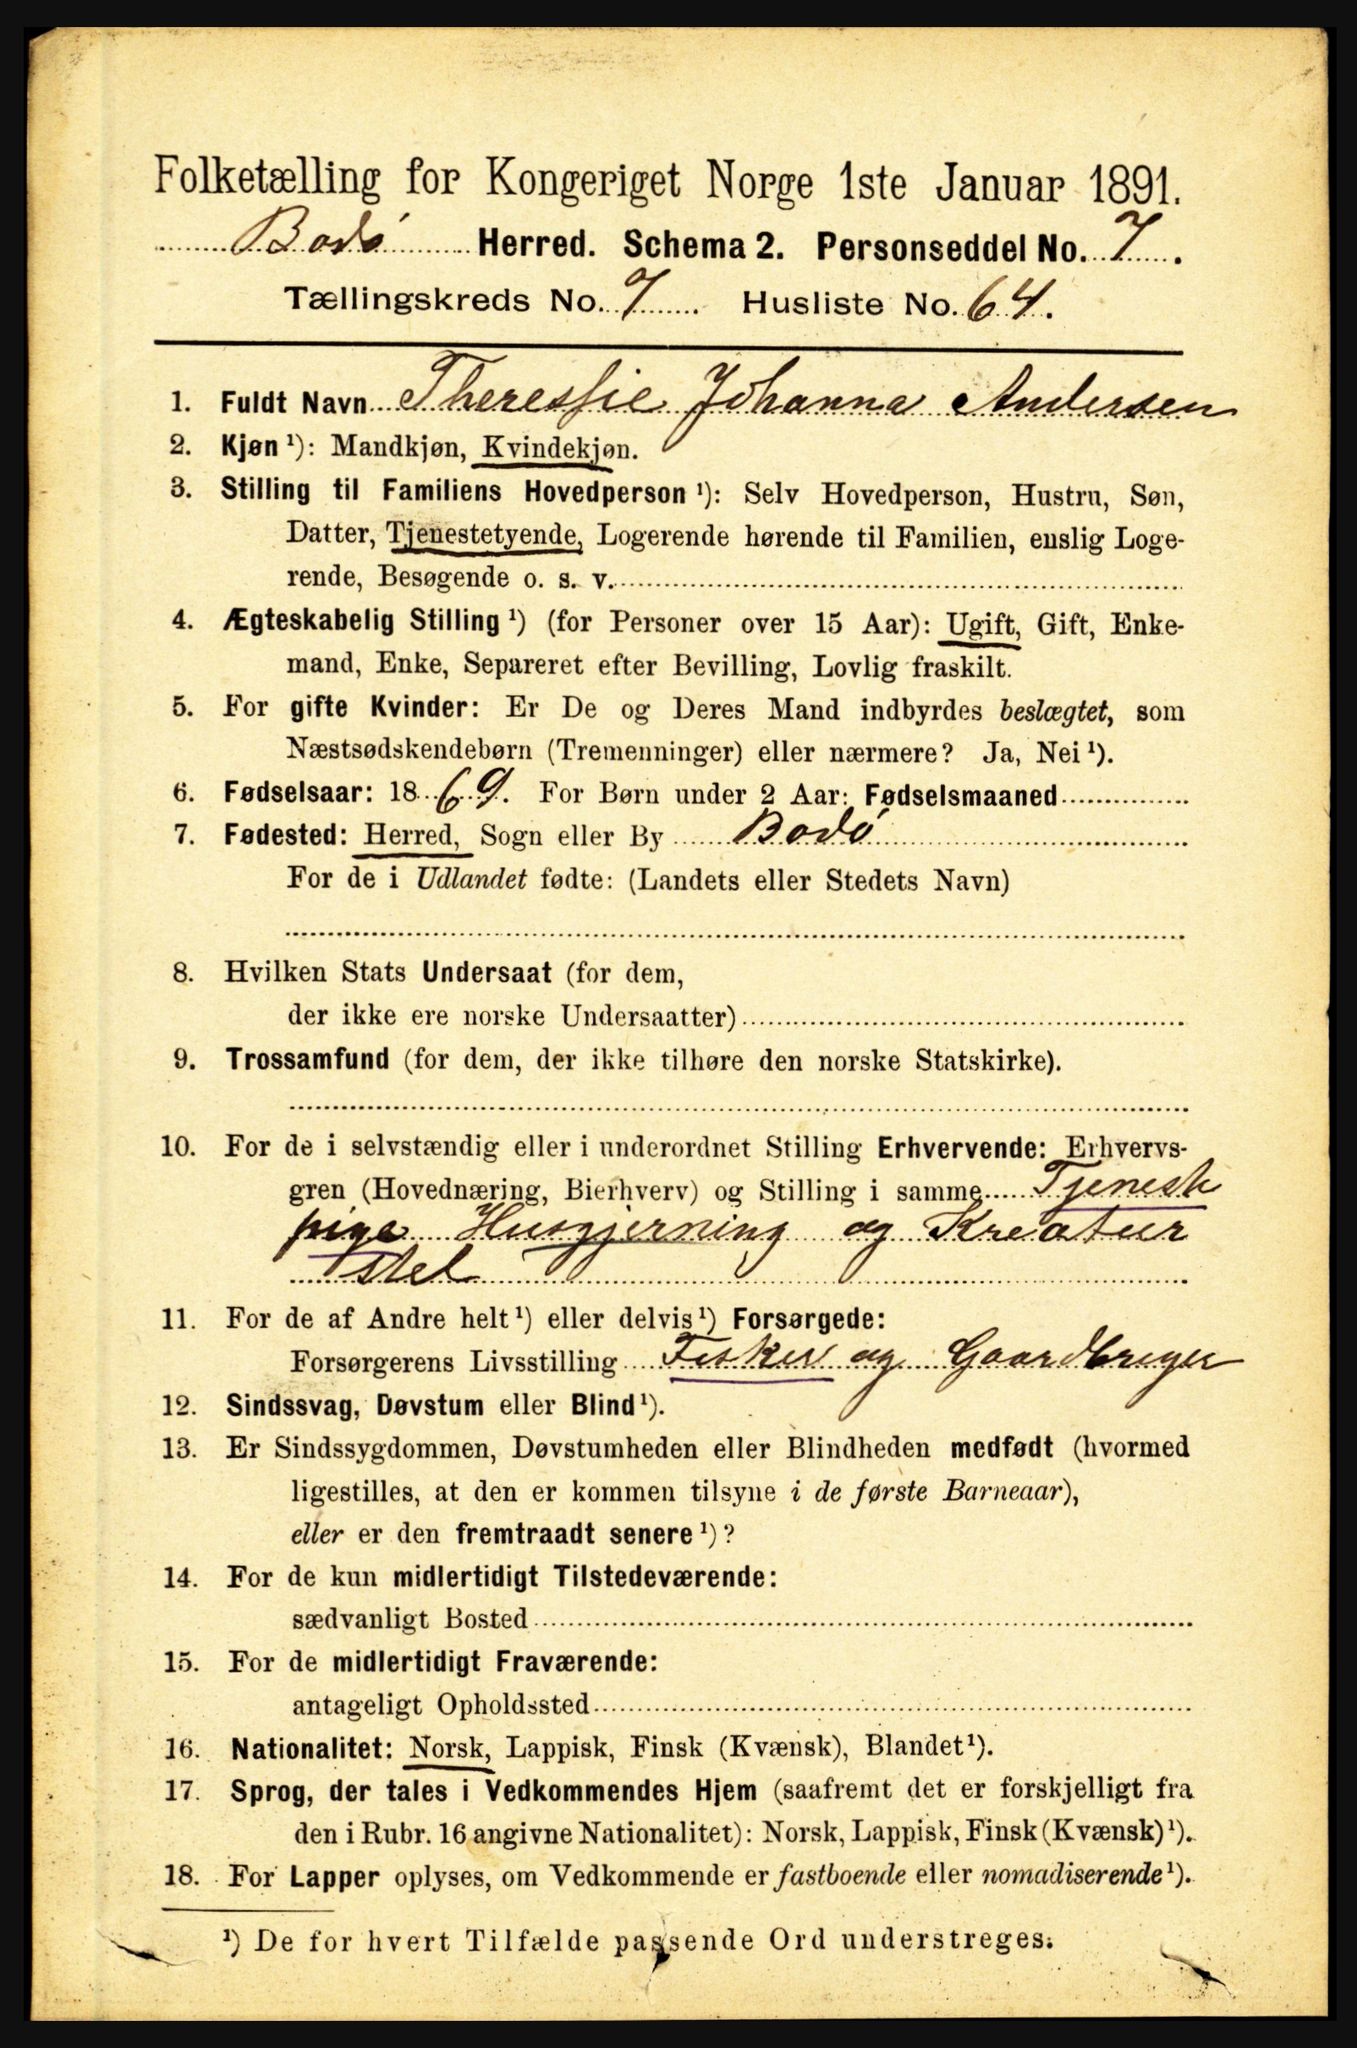 Folketælling for Kongeriget Norge 1ste Januar 1891.
Bodø Herred. Schema 2. Personseddel No. 7.
Tællingskreds No. 7. Husliste No. 64.
1. Fuldt Navn Theressie Johanna Andersen
2. Kjøn ¹): Mandkjøn, Kvindekjøn.
3. Stilling til Familiens Hovedperson ¹): Selv Hovedperson, Hustru, Søn,
Datter, Tjenestetyende, Logerende hørende til Familien, enslig Loge-
rende, Besøgende o. s. v.
4. Ægteskabelig Stilling ¹) (for Personer over 15 Aar): Ugift, Gift, Enke-
mand, Enke, Separeret efter Bevilling, Lovlig fraskilt.
5. For gifte Kvinder: Er De og Deres Mand indbyrdes beslægtet, som
Næstsødskendebørn (Tremenninger) eller nærmere? Ja, Nei ¹).
6. Fødselsaar: 1869. For Børn under 2 Aar: Fødselsmaaned
7. Fødested: Herred, Sogn eller By Bodø
For de i Udlandet fødte: (Landets eller Stedets Navn)
8. Hvilken Stats Undersaat (for dem,
der ikke ere norske Undersaatter)
9. Trossamfund (for dem, der ikke tilhøre den norske Statskirke).
10. For de i selvstændig eller i underordnet Stilling Erhvervende: Erhvervs-
gren (Hovednæring, Bierhverv) og Stilling i samme Tjeneste
pige Husgjerning og Kreatur
stel
11. For de af Andre helt ¹) eller delvis ¹) Forsørgede:
Forsørgerens Livsstilling Fisker og Gaardbruger
12. Sindssvag, Døvstum eller Blind ¹).
13. Er Sindssygdommen, Døvstumheden eller Blindheden medfødt (hvormed
ligestilles, at den er kommen tilsyne i de første Barneaar),
eller er den fremtraadt senere ¹)?
14. For de kun midlertidigt Tilstedeværende:
sædvanligt Bosted
15. For de midlertidigt Fraværende:
antageligt Opholdssted
16. Nationalitet: Norsk, Lappisk, Finsk (Kvænsk), Blandet ¹).
17. Sprog, der tales i Vedkommendes Hjem (saafremt det er forskjelligt fra
den i Rubr. 16 angivne Nationalitet): Norsk, Lappisk, Finsk (Kvænsk) ¹).
18. For Lapper oplyses, om Vedkommende er fastboende eller nomadiserende ¹).
¹) De for hvert Tilfælde passende Ord understreges.